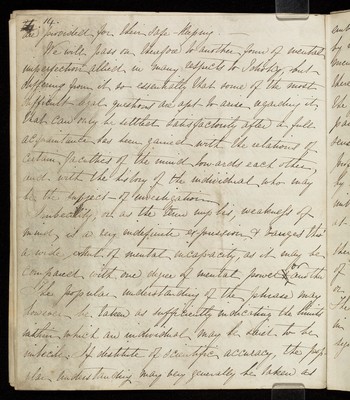 14.
be provided for their safe-keeping. —
We will pass on therefore to another form of mental
imperfection allied in many respects to Idiotcy, but
differing from it so essentially that some of the most
difficult legal questions are apt to arise regarding it,
that can only be settled satisfactorily after a full
acquaintance has been gained with the relations of
certain faculties of the mind towards each other,
and with the history of the individual who may
be the subject of investigation.
Imbecility, or as the term implies, weakness of
mind, is a very indefinite expression & ranges thro'
a wide extent of mental incapacity, as it may be
compared with one degree of mental power or another
The popular understanding of the phrase may
however be taken as sufficiently indicating the limits
within which an individual may be said to be
imbecile. If destitute of scientific accuracy, the pop-
ular understanding may very generally be taken as